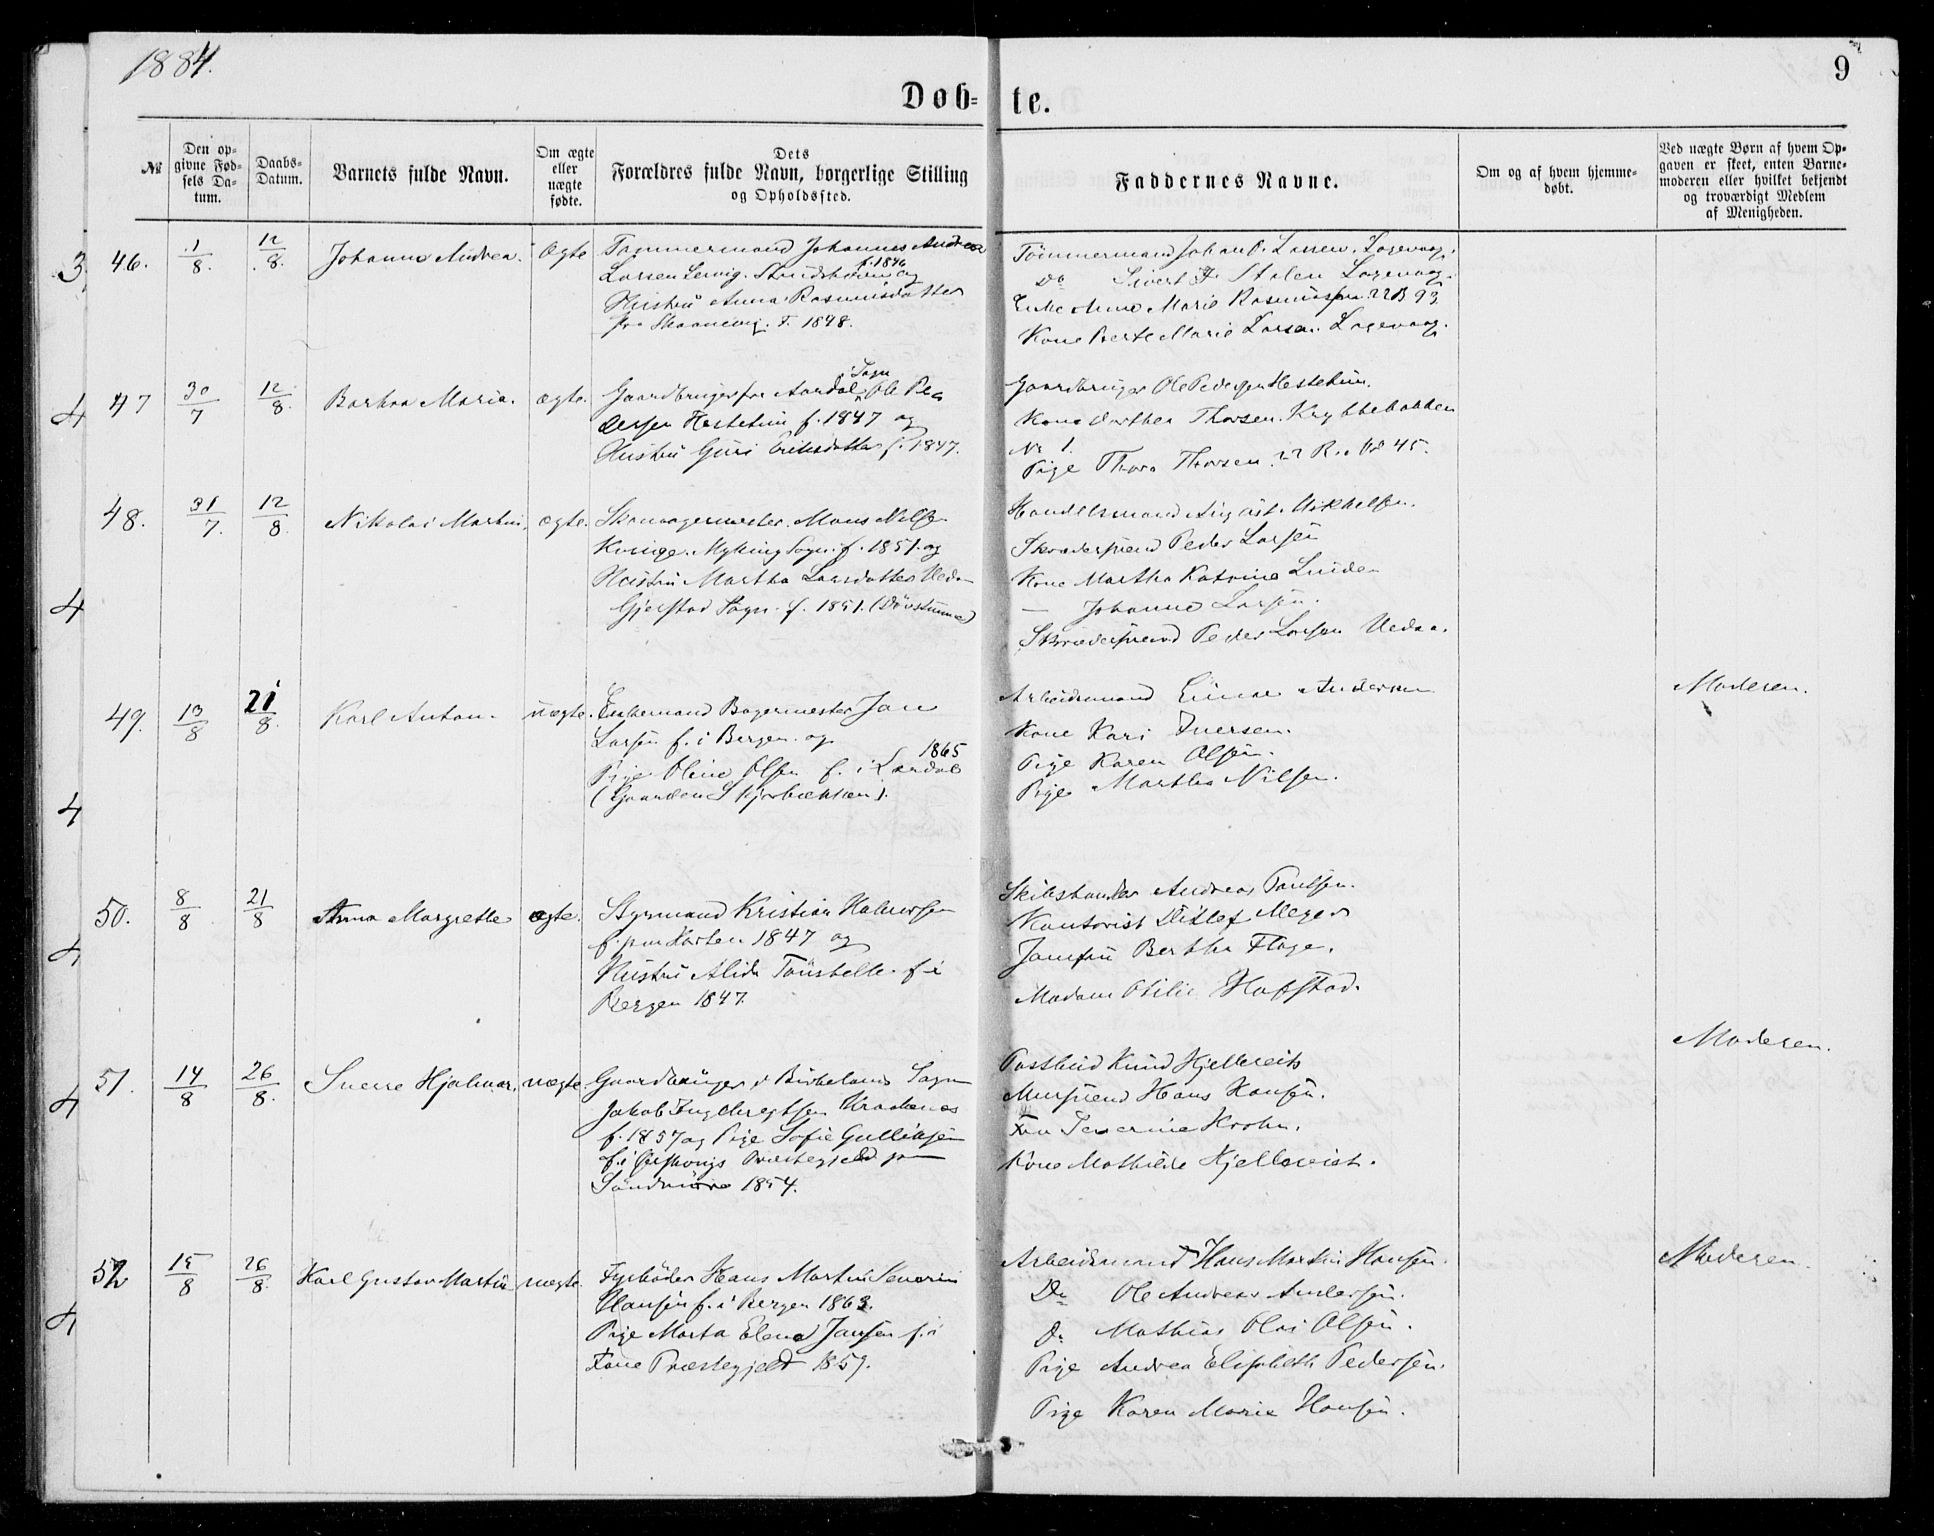 1884.
9
Døb- te.
№
Den opgivne Fødsels Datum.
Daabs-Datum.
Barnets fulde Navn.
Om ægte eller uægte fødte.
Dets Forældres fulde Navn, borgerlige Stilling og Opholdssted.
Faddernes Navne.
Om og af hvem hjemmedøbt.
Ved uægte Børn af hvem Opgaven er skeet, enten Barnemoderen eller hvilket bekjendt og troværdigt Medlem af Menigheden.
3 46. 1/8. 12/8. Johanne Andrea. Ægte
Tømmermand Johannes Andreas
Larsen f. 1846 og
Hustru Anna Rasmusdatter
fra Skaanevig. F. 1848.
Tømmermand Johan P. Larsen. Laxevaag.
Do Sivert F. Stolen Laxevaag.
Enke Anne Marie 22 B 93.
Kone Berte Marie Larsen. Laxevaag.
4 47 30/7 12/8. Barbra Maria. ægte.
Gaardbruger fra Aardal Sogn Ole Pe-
dersen Hestetun f. 1847 og
Hustru Guri Eriksdatter f. 1847.
Gaardbruger Ole Pedersen Hestetun.
Kone Dorthea Thorsen. Krybbebakken
No 1.
Pige Thora Thorsen. 22 R. No 45.
4 48. 31/7. 12/8 Nikolai Martin, ægte.
Skomagermester Mons Nilsen
Sogn. f. 1851. og
Hustru Martha Larsdatter Uedaa
Gjerstad Sogn. f. 1851. (Døvstumme)
Handelsmand August Mikkelsen.
Skrædersvend Peder Larsen
Kone Martha Katrine Linden
— Johanne Larsen.
Skrædersvend Peder Larsen Uedaa.
4 49. 13/8 21/8. Karl Anton. uægte.
Enkemand Bagermester Jan
Larsen f. i Bergen og
Pige Oline Olsen f. i Lærdal 1865
(Gaarden
Arbeidsmand Einar Andersen
Kone Kari Iversen.
Pige Karen Olsen.
Pige Martha Nilsen.
Moderen.
4 50. 8/8 21/8 Anna Margrethe ægte.
Styrmand Kristian Halvorsen
f. paa Karten 1847 og
Hustru Alida f. i
Bergen 1847.
Skibshandler Andreas Paulsen.
Kontorist Ditlef Meyer
Jomfru Bertha Flage.
Madam Otilie Hofstad.
4 51. 14/8 26/8. Sverre Hjalmar. uægte
Gaardbruger i Birkelands Sogn
Jakob Ingebregtsen Kraakenes
f. 1857 og Pige Sofie Gulliksen
f. i Ørskougs Præstegjeld paa
Søndmøre 1854.
Postbud Knud Hjellereit
Mursvend Hans Hansen.
Fru Severine Krohn.
Kone Mathilde Hjellereit.
Moderen.
4 52 15/8 26/8. Karl Gustav Martin uægte
Fyrbøder Hans Martin Severin
Hansen f. i Bergen 1863.
Pige Marta Elene Jansen f. i
Fane Præstegjeld 1859.
Arbeidsmand Hans Martin Hansen.
Do Ole Andreas Andersen.
Do Mathias Olai Olsen.
Pige Andrea Elisabeth Pedersen.
Pige Karen Marie Hansen.
Moderen.